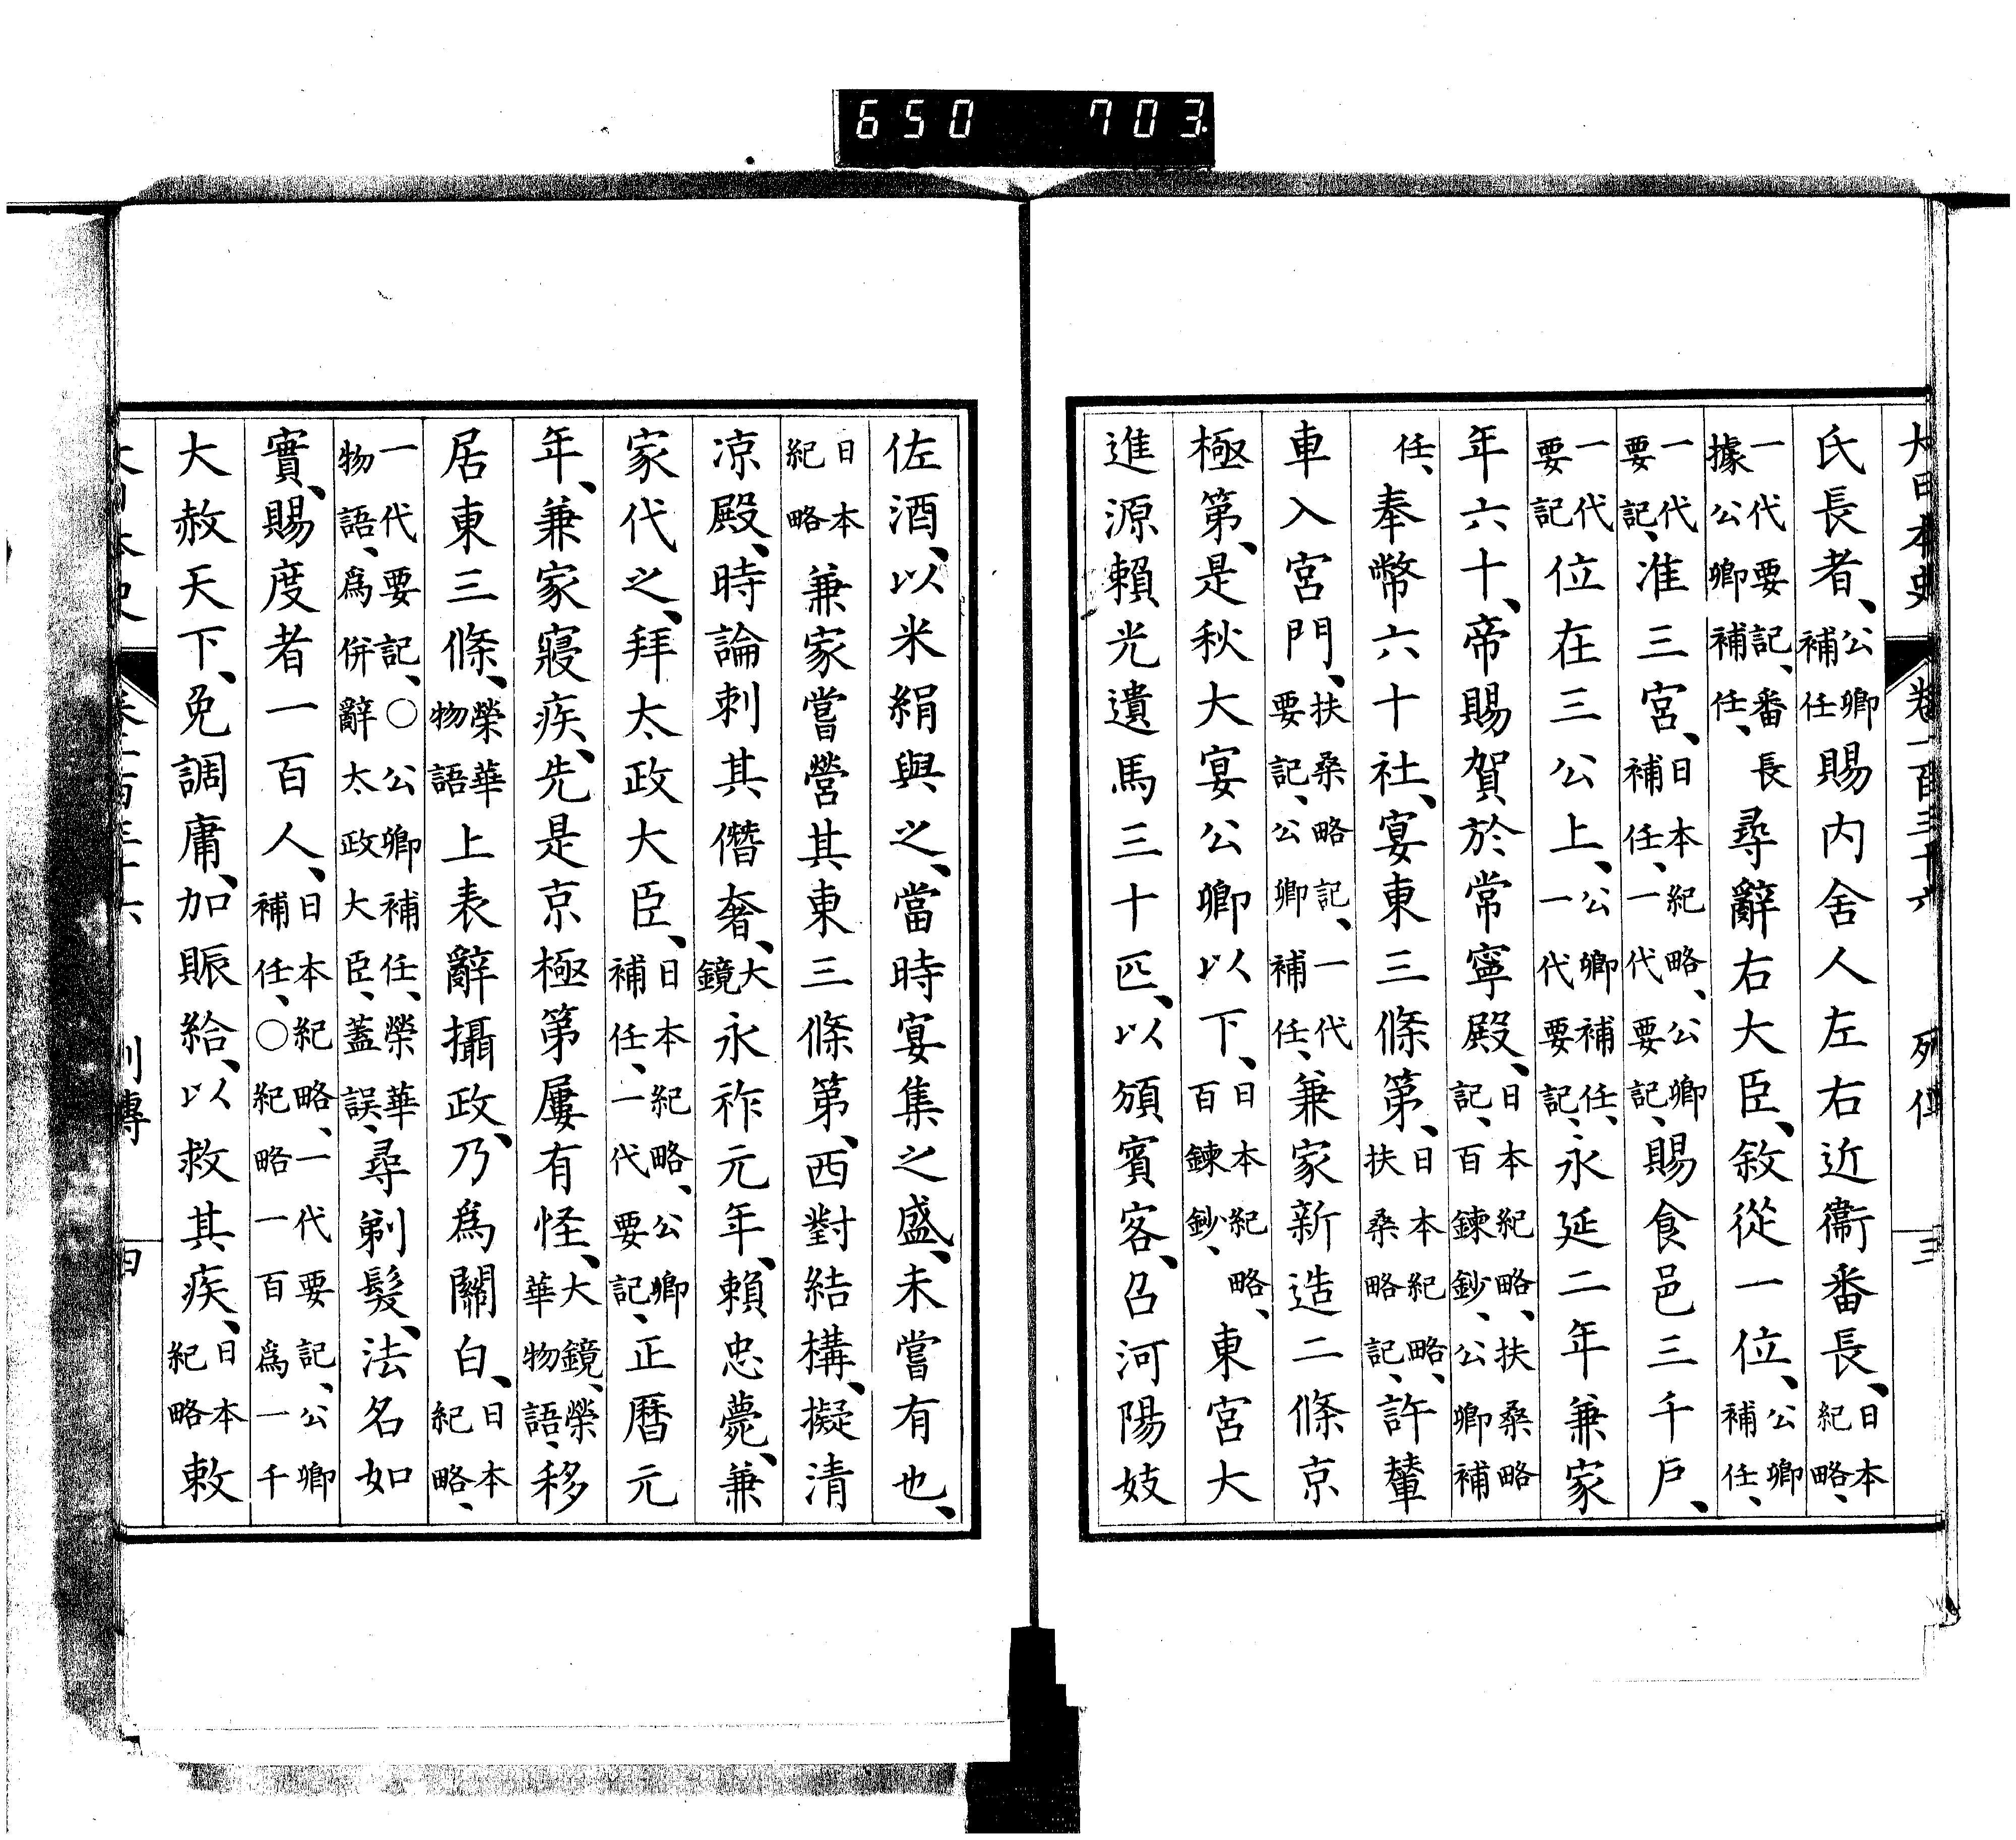 大日本史 卷一百三十六 列傳 三
氏長者、公卿補任賜内舍人左右近衞番長、日本紀略、
一代要記、番長據公卿補任、尋辭右大臣、敘從一位、公卿補任、
一代要記、准三宮、日本紀略、公卿補任、一代要記、賜食邑三千戸、
一代要記位在三公上、公卿補任、一代要記、永延二年兼家
年六十、帝賜賀於常寧殿、日本紀略、扶桑略記、百鍊鈔、公卿補
任、奉幣六十社、宴東三條第、日本紀略、扶桑略記、許輦
車入宮門、扶桑略記、一代要記、公卿補任、兼家新造二條京
極第、是秋大宴公卿以下、日本紀略、百鍊鈔、東宮大
進源賴光遺馬三十匹、以頒賓客、召河陽妓
佐酒、以米絹與之、當時宴集之盛、未嘗有也、
日本紀略兼家嘗營其東三條第、西對結構、擬清
凉殿、時論刺其僭奢、大鏡永祚元年、賴忠薨、兼
家代之、拜太政大臣、日本紀略、公卿補任、一代要記、正曆元
年、兼家寢疾、先是京極第屢有怪、大鏡、榮華物語、移
居東三條、榮華物語上表辭攝政、乃爲關白、日本紀略、
一代要記、○公卿補任、榮華物語、爲併辭太政大臣、蓋誤、尋剃髮、法名如
實、賜度者一百人、日本紀略、一代要記、公卿補任、○紀略一百爲一千
大赦天下、免調庸、加賑給、以救其疾、日本紀略敕
列傳 四
650 703